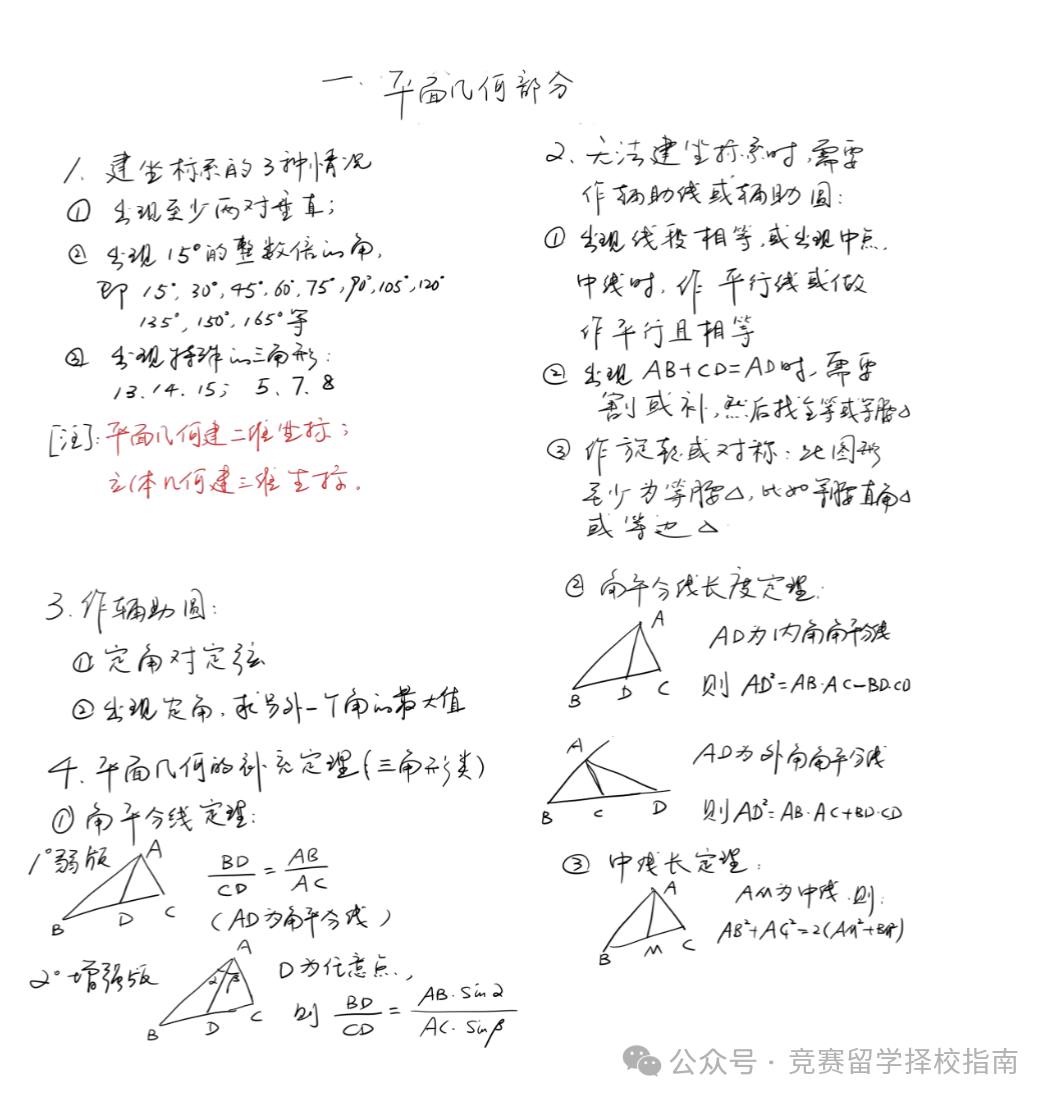 一.平面几何部分
1. 建坐标系的3种情况
① 出现至少两对垂直;
② 出现15°的整数倍的角,
即 15°, 30°, 45°, 60°, 75°, 90°, 105°, 120°
135°, 150°, 165°等
③ 出现特殊的三角形:
13. 14. 15; 5. 7. 8
[注]: 平面几何建二维坐标;
立体几何建三维坐标.
2. 无法建坐标系时,需要
作辅助线或辅助圆:
① 出现线段相等,或出现中点,
中线时, 作 平行线或做
作平行且相等
② 出现 AB+CD=AD时, 需要
割或补, 然后找全等或等腰△
③ 作旋转或对称: 此图形
至少为等腰△, 比如等腰直角△
或等边△
3. 作辅助圆:
① 定角对定弦
② 出现定角, 求另外一个角的最大值
4. 平面几何的补充定理(三角形类)
① 角平分线定理:
1°弱版
A
B
D
C
BD/CD = AB/AC
(AD为角平分线)
2°增强版
A
α β
B
D
C
D为任意点,
则 BD/CD = AB·sinα/AC·sinβ
② 角平分线长度定理:
A
B
D
C
AD为内角角平分线
则 AD²=AB·AC-BD·CD
A
B
C
D
AD为外角角平分线
则AD²=AB·AC+BD·CD
③ 中线长定理:
A
B
M
C
AM为中线.则:
AB²+AC²=2(AM²+BM²)
公众号 · 竞赛留学择校指南